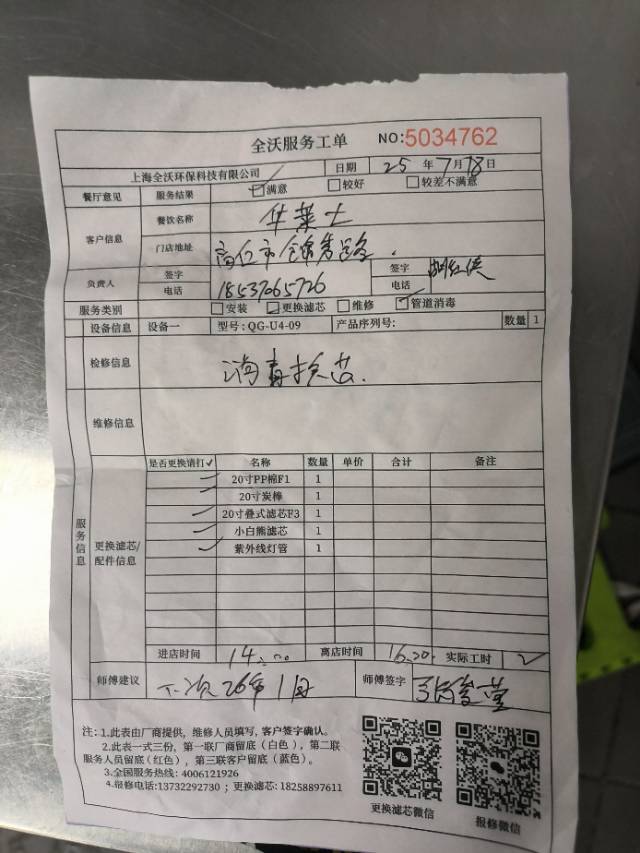 全沃服务工单 NO:5034762
上海全沃环保科技有限公司 日期 25 年 7 月 18 日
餐厅意见 服务结果 ☑满意 □较好 □较差不满意
客户信息 餐饮名称 华莱士
门店地址
负责人 签字 签字
电话 18537065726 电话
服务类别 □安装 ☑更换滤芯 □维修 ☑管道消毒
设备信息 设备一 型号:QG-U4-09 产品序列号: 数量 1
检修信息 消毒换芯.
维修信息
服务信息
更换滤芯/配件信息
是否更换请打✓ 名称 数量 单价 合计 备注
✓ 20寸PP棉F1 1
✓ 20寸炭棒 1
✓ 20寸叠式滤芯F3 1
✓ 小白熊滤芯 1
✓ 紫外线灯管 1
进店时间 14:00 离店时间 16:20 实际工时 2
师傅建议 下次26年1月 师傅签字
注:1.此表由厂商提供,维修人员填写,客户签字确认。
2.此表一式三份,第一联厂商留底(白色),第二联
服务人员留底(红色),第三联客户留底(蓝色)。
3.全国服务热线: 4006121926
4.报修电话:13732292730 ; 更换滤芯: 18258897611
更换滤芯微信 报修微信